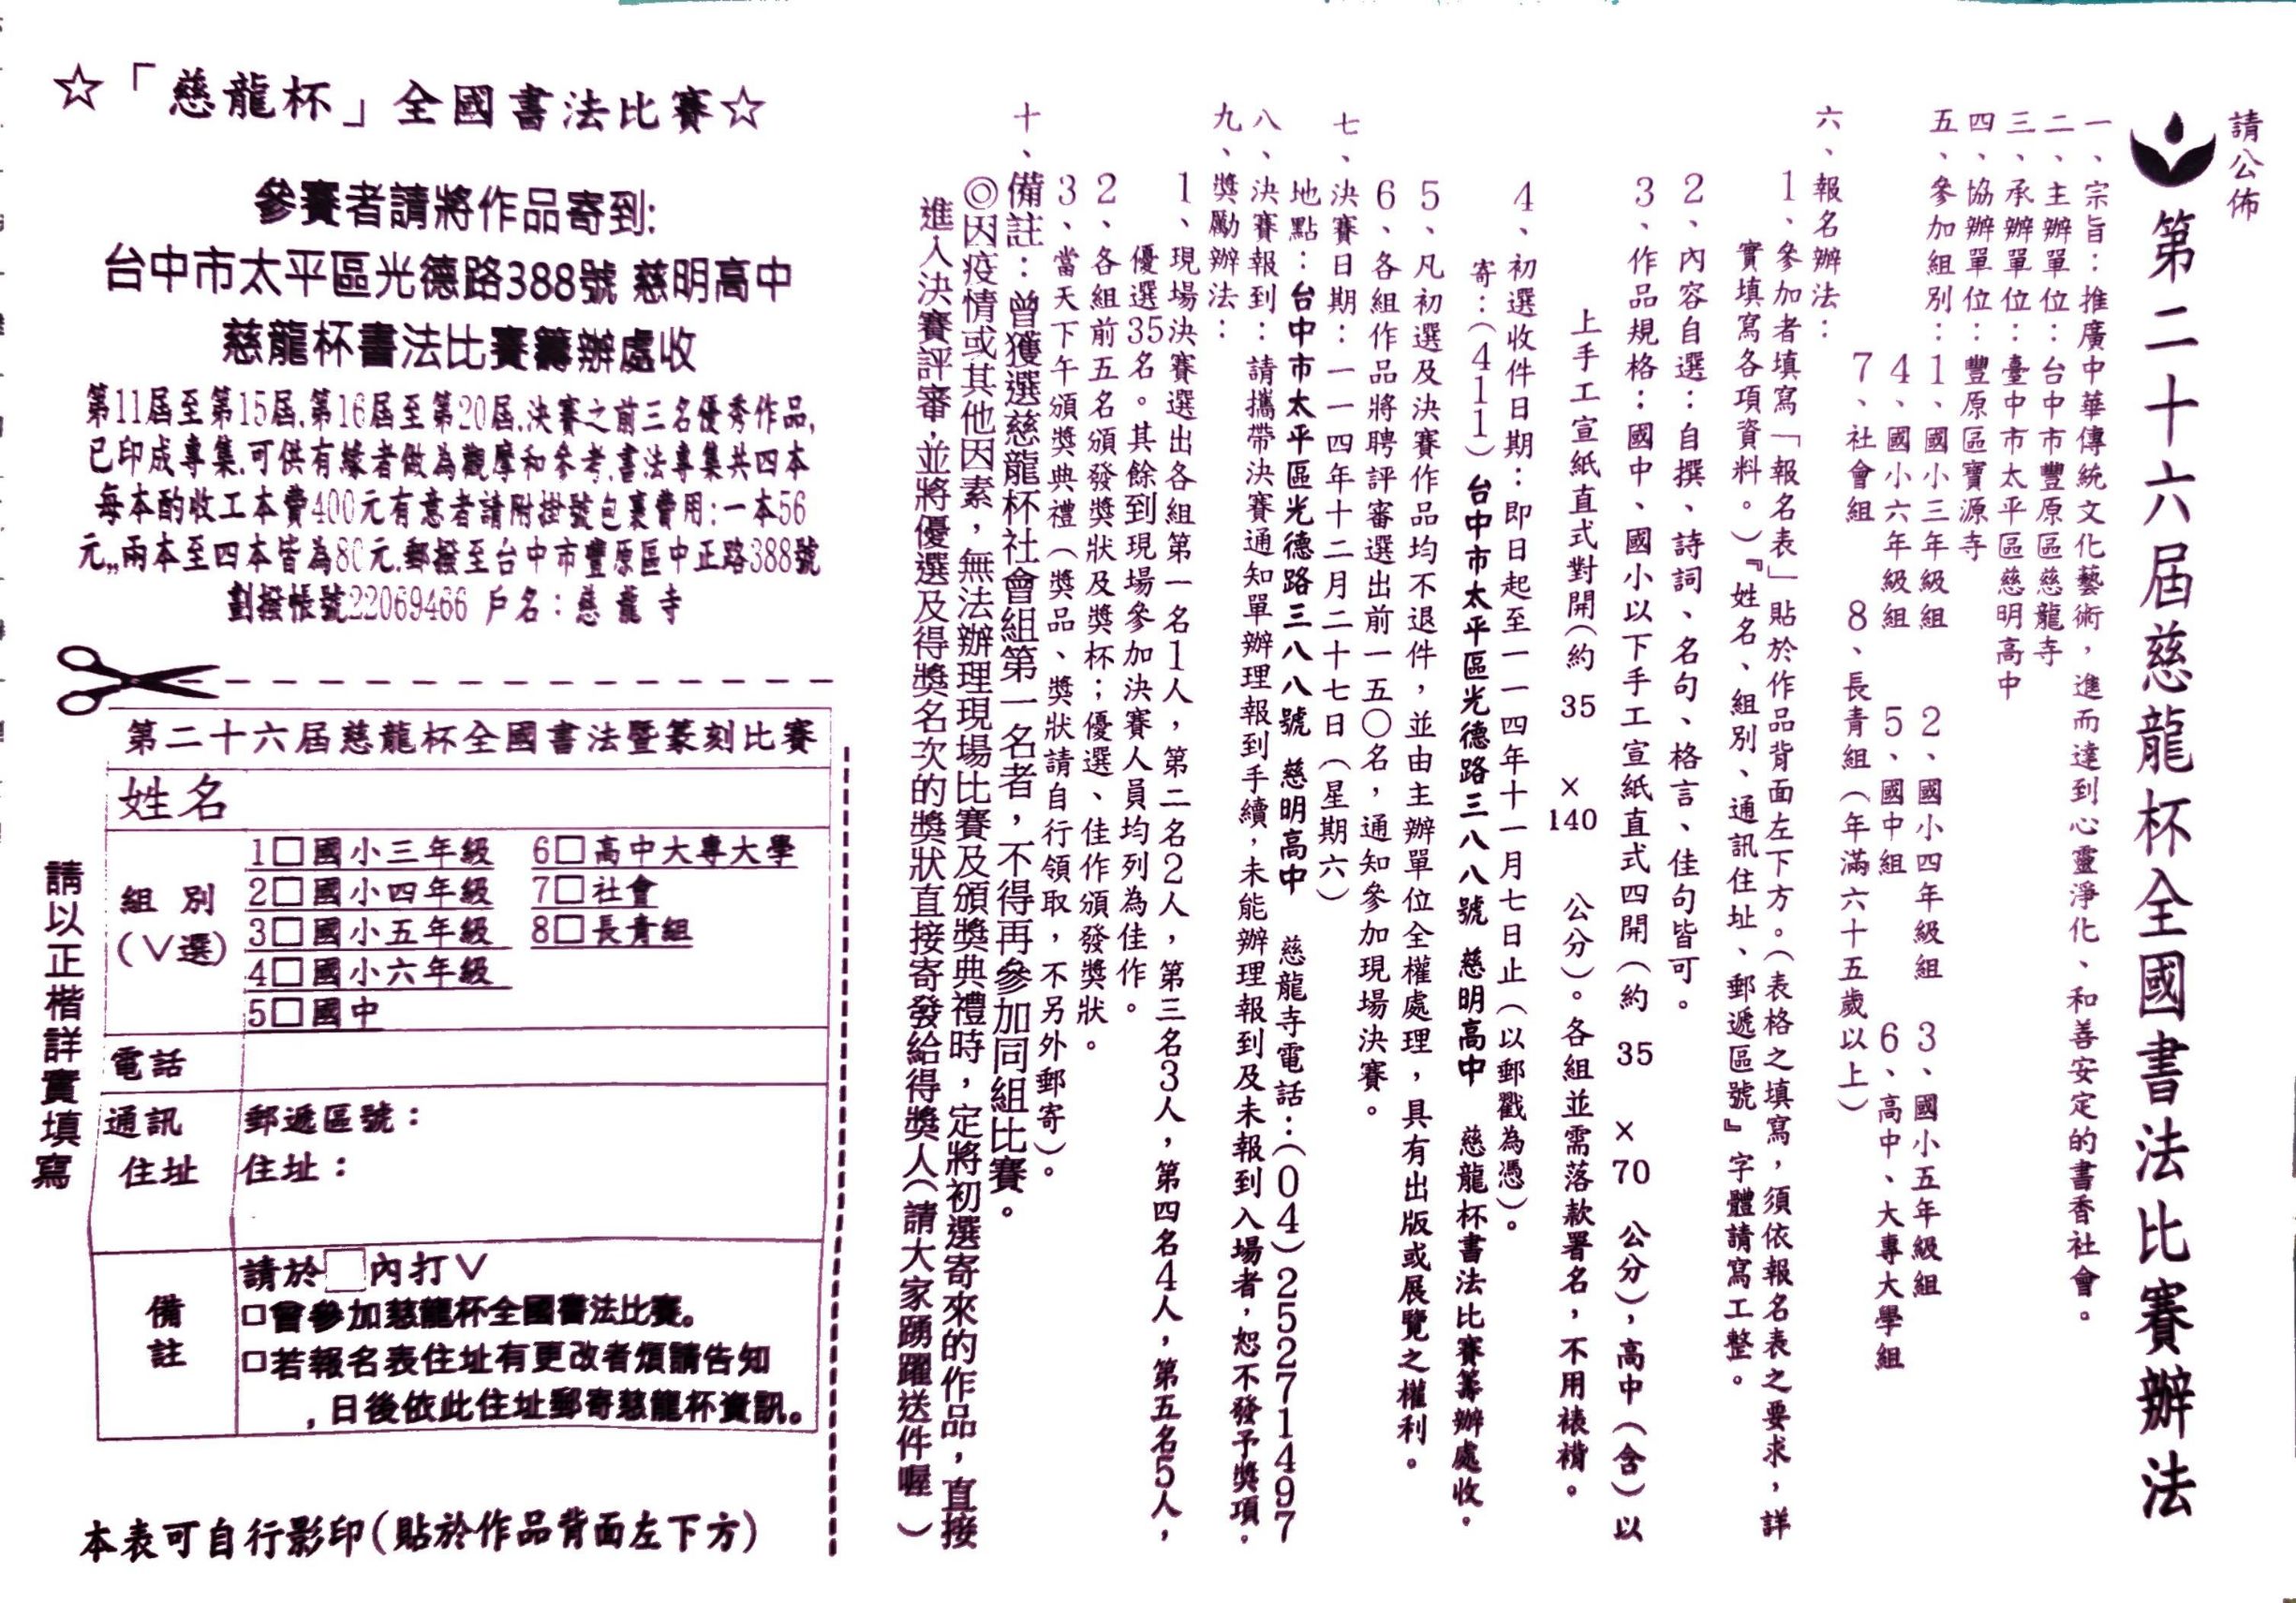 請公佈
第二十六屆慈龍杯全國書法比賽辦法
一、宗旨：推廣中華傳統文化藝術，進而達到心靈淨化、和善安定的書香社會。
二、主辦單位：台中市豐原區慈龍寺
三、承辦單位：臺中市太平區慈明高中
四、協辦單位：豐原區寶源寺
五、參加組別：1、國小三年級組　2、國小四年級組　3、國小五年級組
4、國小六年級組　5、國中組　6、高中、大專大學組
7、社會組　8、長青組（年滿六十五歲以上）
六、報名辦法：
1、參加者填寫「報名表」貼於作品背面左下方。（表格之填寫，須依報名表之要求，詳
實填寫各項資料。）『姓名、組別、通訊住址、郵遞區號』字體請寫工整。
2、內容自選：自撰、詩詞、名句、格言、佳句皆可。
3、作品規格：國中、國小以下手工宣紙直式四開（約 35 × 70 公分），高中（含）以
上手工宣紙直式對開（約 35 × 140 公分）。各組並需落款署名，不用裱褙。
4、初選收件日期：即日起至一一四年十一月七日止（以郵戳為憑）。
寄：（411）台中市太平區光德路三八八號 慈明高中　慈龍杯書法比賽籌辦處收。
5、凡初選及決賽作品均不退件，並由主辦單位全權處理，具有出版或展覽之權利。
6、各組作品將聘評審選出前一五〇名，通知參加現場決賽。
七、決賽日期：一一四年十二月二十七日（星期六）
地點：台中市太平區光德路三八八號 慈明高中　慈龍寺電話：（04）25271497
八、決賽報到：請攜帶決賽通知單辦理報到手續，未能辦理報到及未報到入場者，恕不發予獎項。
九、獎勵辦法：
1、現場決賽選出各組第一名1人，第二名2人，第三名3人，第四名4人，第五名5人，
優選35名。其餘到現場參加決賽人員均列為佳作。
2、各組前五名頒發獎狀及獎杯；優選、佳作頒發獎狀。
3、當天下午頒獎典禮（獎品、獎狀請自行領取，不另外郵寄）。
十、備註：曾獲選慈龍杯社會組第一名者，不得再參加同組比賽。
◎因疫情或其他因素，無法辦理現場比賽及頒獎典禮時，定將初選寄來的作品，直接
進入決賽評審，並將優選及得獎名次的獎狀直接寄發給得獎人（請大家踴躍送件喔）
☆「慈龍杯」全國書法比賽☆
參賽者請將作品寄到:
台中市太平區光德路388號 慈明高中
慈龍杯書法比賽籌辦處收
第11屆至第15屆.第16屆至第20屆.決賽之前三名優秀作品,
已印成專集,可供有緣者做為觀摩和參考.書法專集共四本
每本酌收工本費400元有意者請附掛號包裹費用:一本56
元,,兩本至四本皆為80元.郵撥至台中市豐原區中正路388號
劃撥帳號22069466 戶名：慈 龍 寺
第二十六屆慈龍杯全國書法暨篆刻比賽
姓名
組 別
(∨選)
1□國小三年級　6□高中大專大學
2□國小四年級　7□社會
3□國小五年級　8□長青組
4□國小六年級
5□國中
電話
通訊
住址
郵遞區號：
住址：
備註
請於□內打∨
□曾參加慈龍杯全國書法比賽。
□若報名表住址有更改者煩請告知
,日後依此住址郵寄慈龍杯資訊。
請以正楷詳實填寫
本表可自行影印(貼於作品背面左下方)